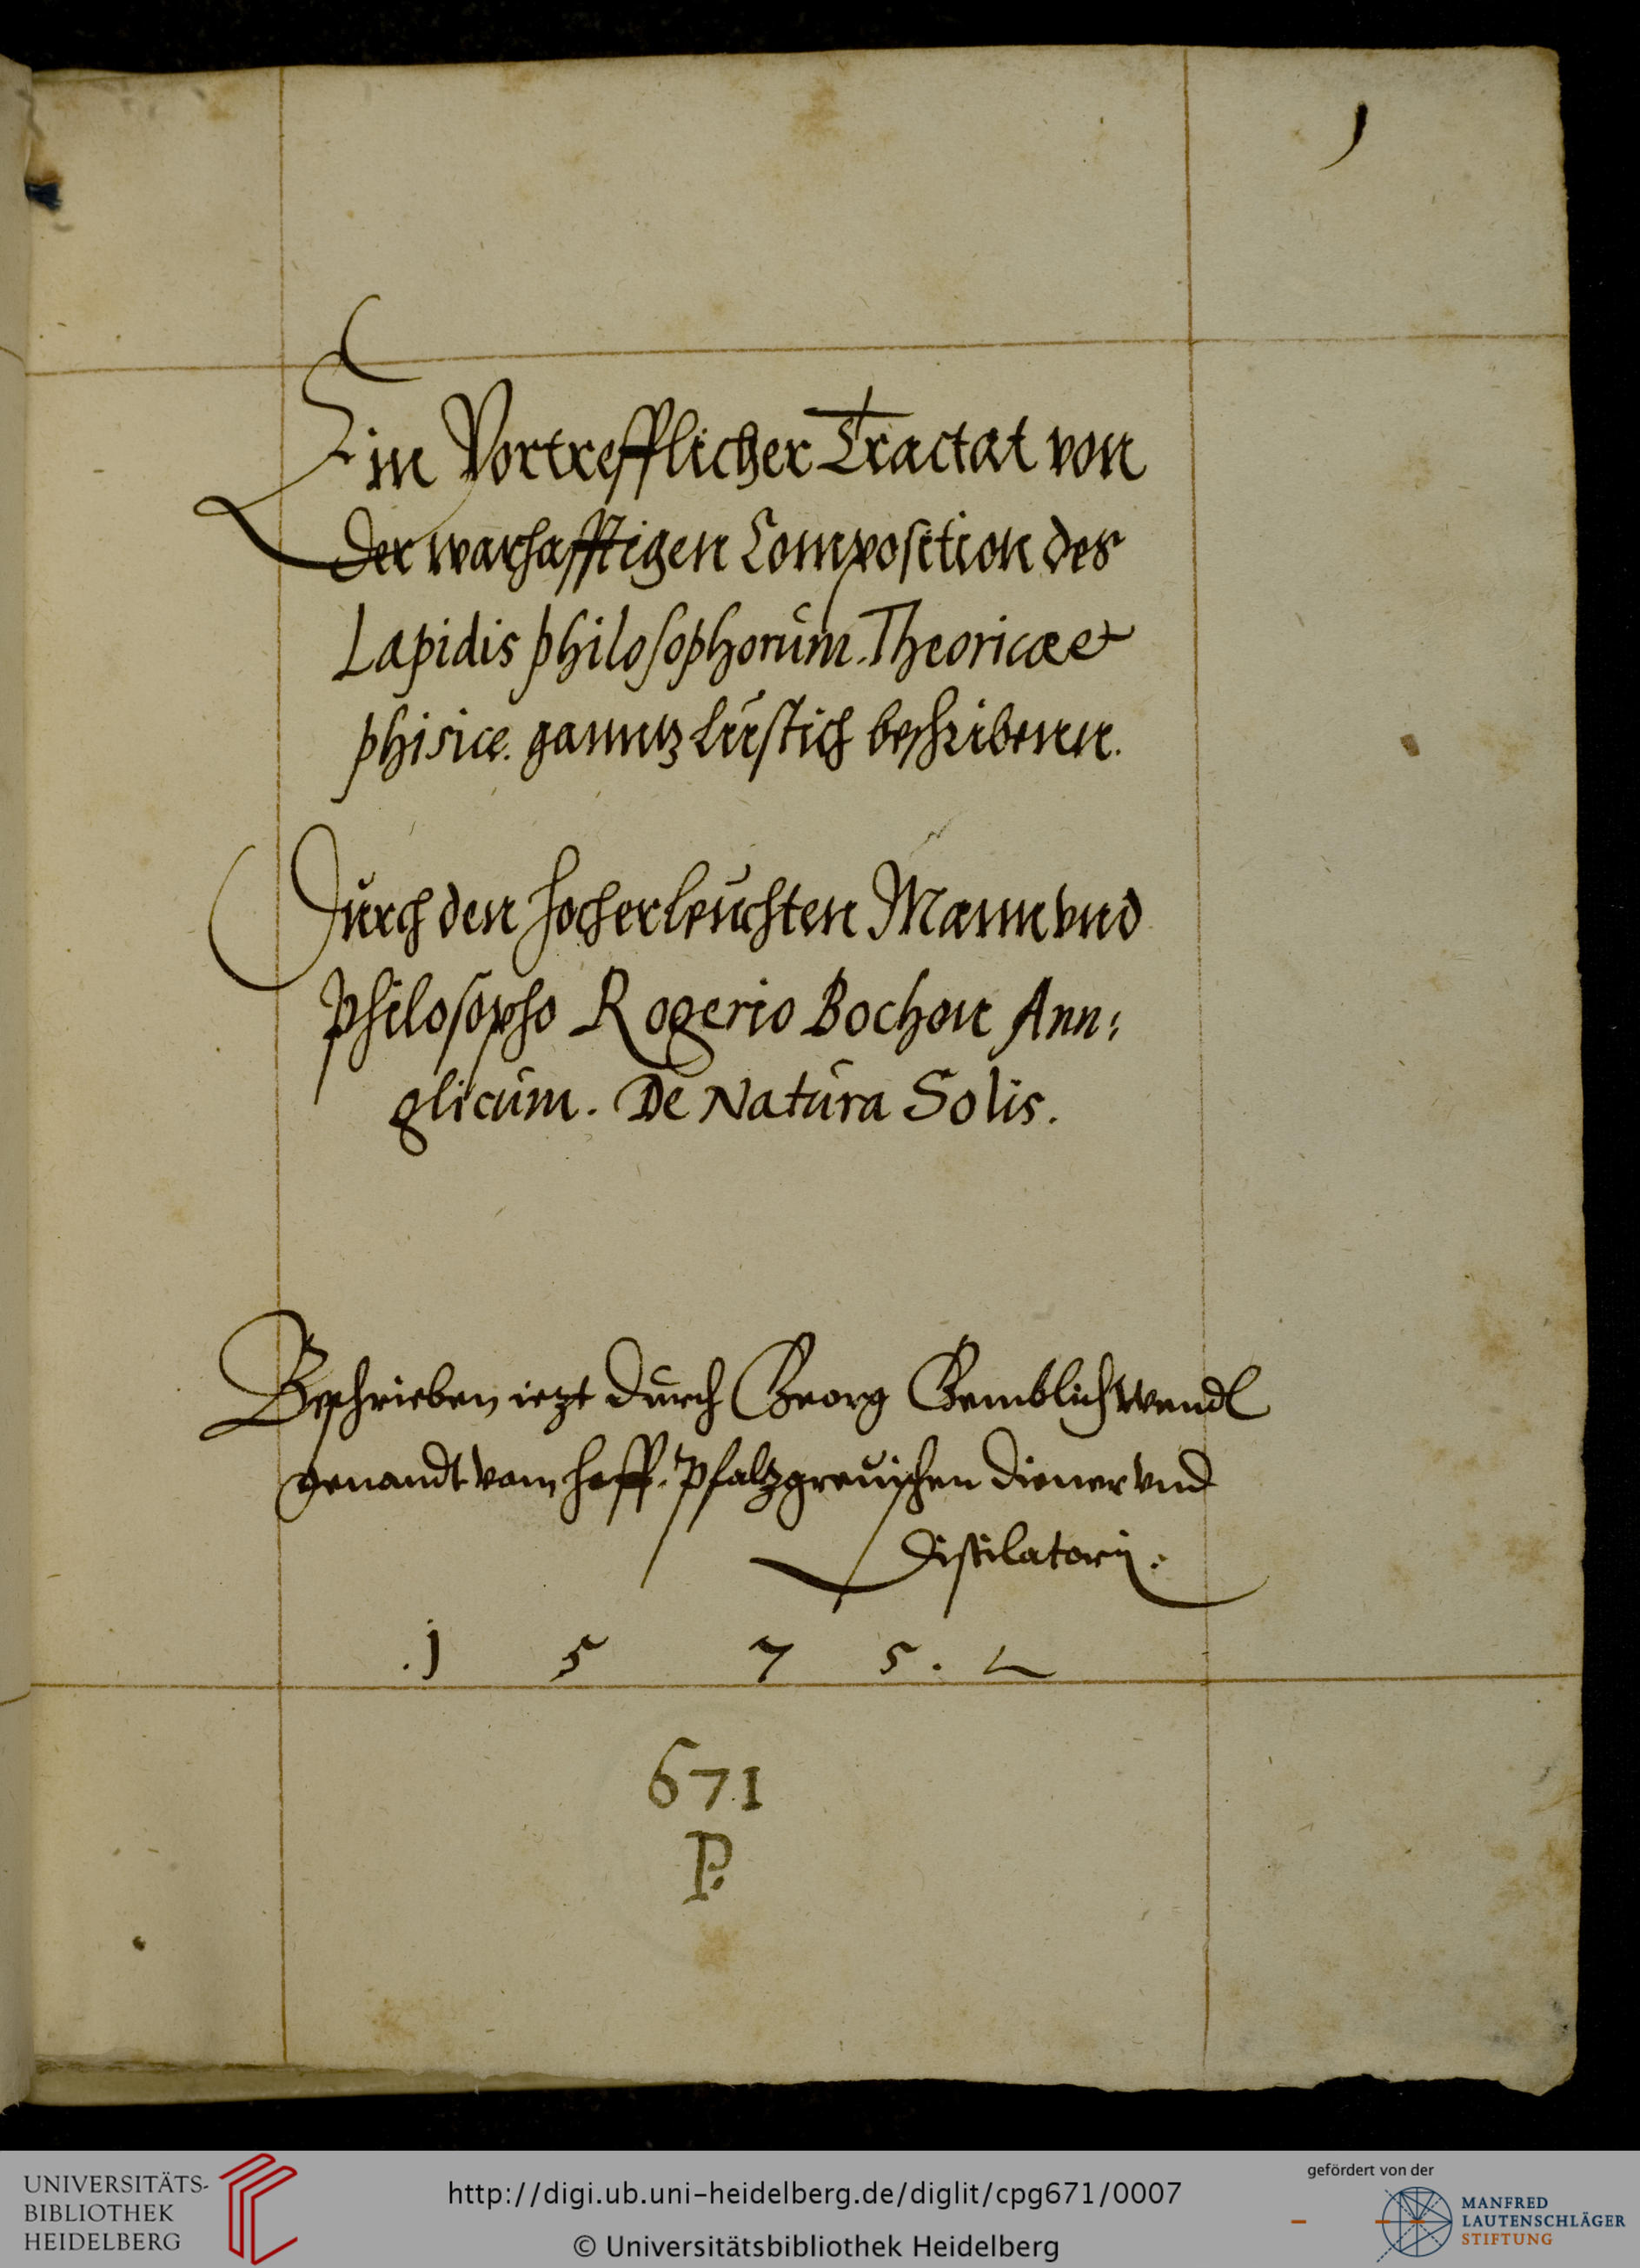 1
Ein Vortrefflicher Tractat von
der warhafftigen Composition des
Lapidis philosophorum. Theoricæ et
phisice. ganntz lustich beschribenn.
Durch den hocherleuchten Mann vnd
philosopho Rogerio Bochon Ann:
glicum. De Natura Solis.
Beschrieben iezt durch Georg
genandt vom hoff. Pfaltzgreuischen diener vnd
Distilatorij.
.1 5 7 5.
671
P.
UNIVERSITÄTS-
BIBLIOTHEK
HEIDELBERG
http://digi.ub.uni-heidelberg.de/diglit/cpg671/0007
© Universitätsbibliothek Heidelberg
gefördert von der
MANFRED
LAUTENSCHLÄGER
STIFTUNG